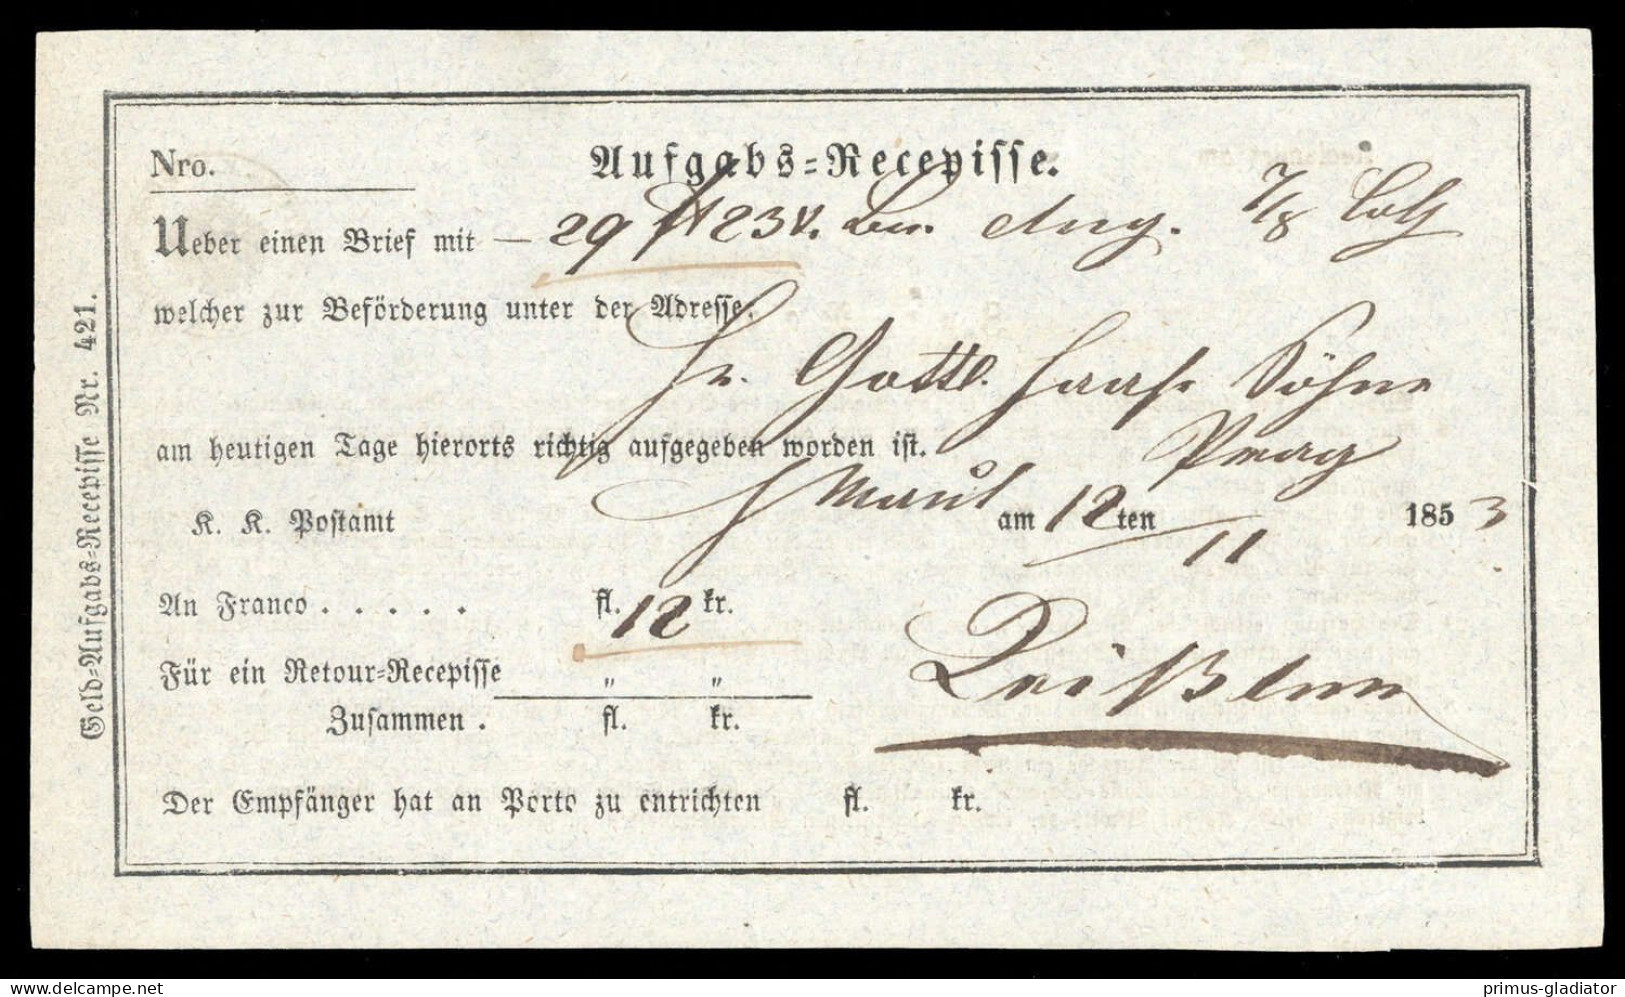 Nro.
Aufgabs=Recepisse.
Ueber einen Brief mit — 29 fl 23 x. 7/8 Loth
welcher zur Beförderung unter der Adresse.
Hr. Gottl. Haase Söhne
Prag
am heutigen Tage hierorts richtig aufgegeben worden ist.
K. K. Postamt am 12ten 11 1853
An Franco . . . . . fl. 12 kr.
Für ein Retour=Recepisse " "
Zusammen . fl. kr.
Der Empfänger hat an Porto zu entrichten fl. kr.
Geld=Aufgabs=Recepisse Nr. 421.
delcampe.net
primus-gladiator